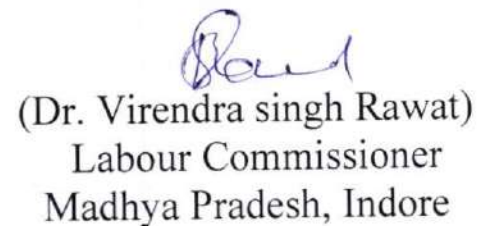 (Dr. Virendra singh Rawat)
Labour Commissioner
Madhya Pradesh, Indore